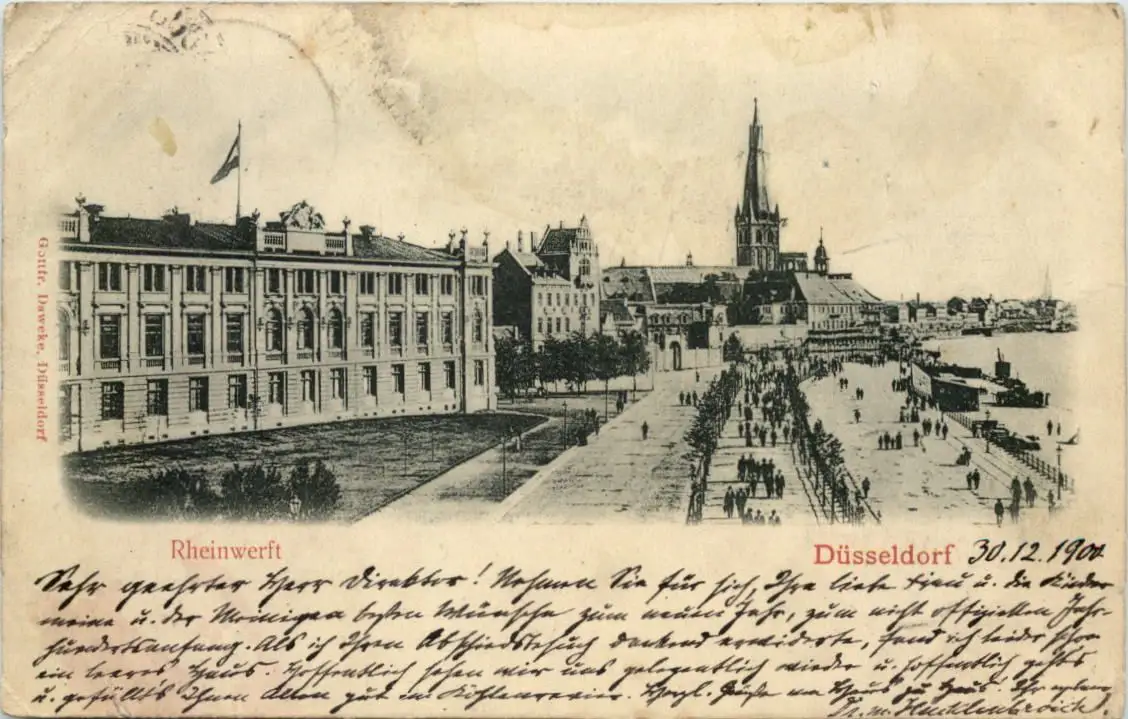 Gottfr. Daweke, Düsseldorf
Rheinwerft
Düsseldorf 30.12.1900
Sehr geehrter Herr Direktor! Nehmen Sie für sich, Ihre liebe Frau u. die Kinder
meine u. der Meinigen besten Wünsche zum neuen Jahr, zum nicht offiziellen Jahr-
hundertsanfang. Als ich Ihren Abschiedsbesuch dankend erwiderte, fand ich leider schon
ein leeres Haus. Hoffentlich sehen wir uns gelegentlich wieder u. hoffentlich gehts
u. gefällts Ihnen Allen gut im Kohlenrevier. Herzl. Grüße von Haus zu Haus. Ihr
Dr. W.